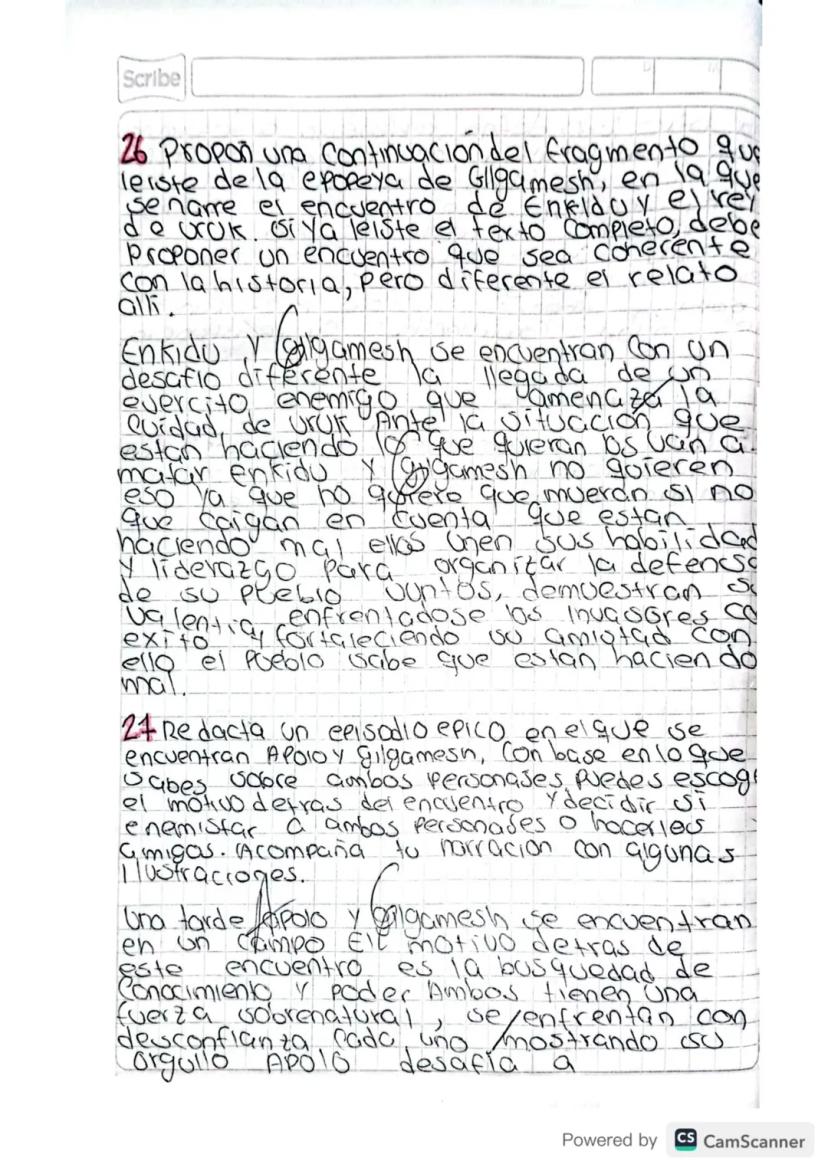 Scribe
26 Propon una continuación del fragmento que
leiste de la epopeya de Gilgamesh, en la que
se narre el encuentro de Enkidu y el rey
de uruk. (si ya leiste el texto completo, debe
proponer un encuentro que sea coherente
con la historia, pero diferente el relato
alli.
Enkidu y Gilgamesh se encuentran con un
desafio diferente la llegada de un
ejercito enemigo que amenaza la
cuidad, de uruk Ante la situacion que
estan haciendo lo que quieran los van a
matar enkidu y Gilgamesh no quieren
eso ya que no quiere que mueran si no
que caigan en cuenta que estan
haciendo mal ellos unen sus habilidad
y liderazgo para organizar la defensa
de su pueblo juntos, demuestran su
valentia, enfrentadose los invasores co
exito y fortaleciendo su amistad con
ello el pueblo sabe que estan haciendo
mal.
27 Redacta un episodio epico en el que se
encuentran Apolo y Gilgamesh, Con base en lo que
sabes sobre ambos personajes, puedes escog
el motivo detras del encuentro y decidir si
enemistar a ambos personajes o hacerles
amigos. Acompaña tu narracion con algunas
ilustraciones.
Una tarde Apolo y Gilgamesh se encuentran
en un campo El motivo detras de
este encuentro es la busquedad de
Conocimiento y poder Ambos tienen una
fuerza sobrenatural, se enfrentan con
desconfianza cada uno mostrando su
orgullo Apolo desafía a
Powered by CS CamScanner